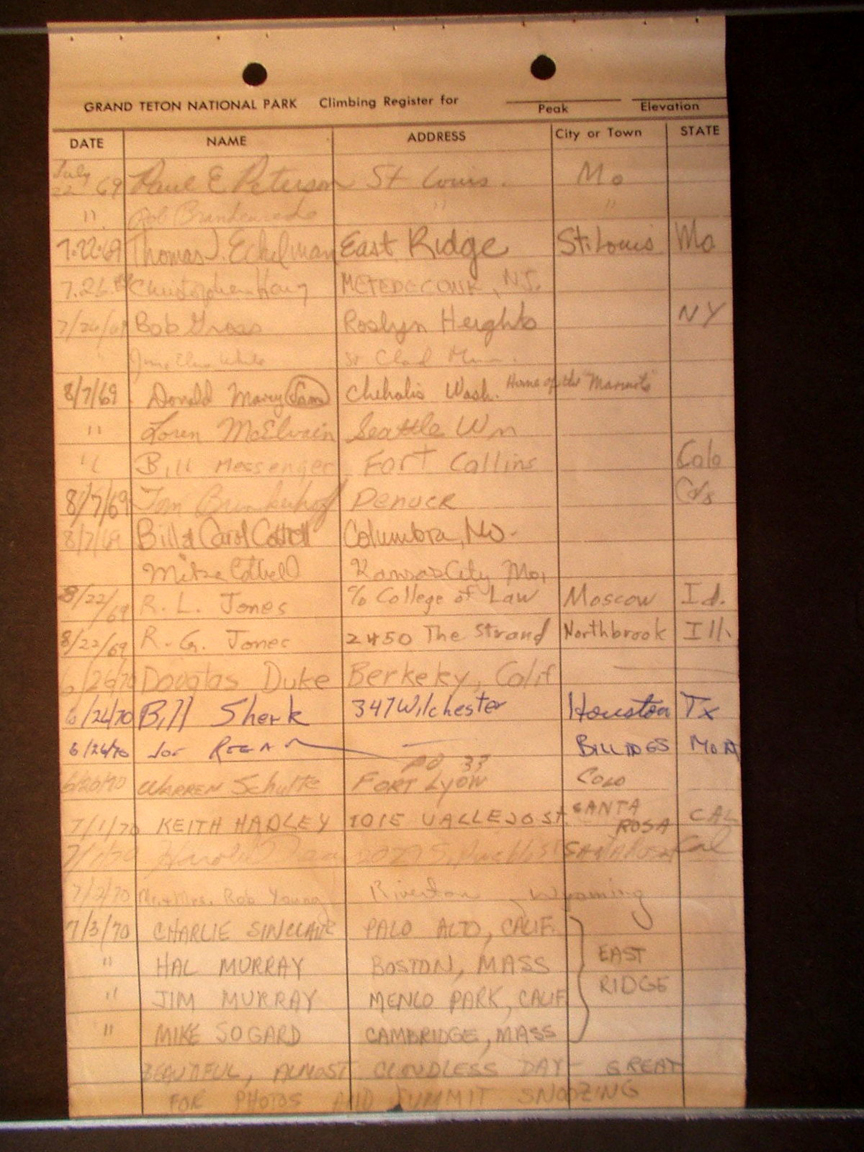 GRAND TETON NATIONAL PARK Climbing Register for
Peak Elevation
DATE NAME ADDRESS City or Town STATE
July 22 69 Paul E Peterson St Louis. Mo
" Bob " "
7.22.69 Thomas J. Eckelman East Ridge St. Louis Mo
7.26. METEDECONK, N.J.
7/26/69 Bob Gross Roslyn Heights NY
St Cloud
8/7/69 Donald Chehalis Wash. Home of the
" Loren McElvain Seattle Wn
" Bill Messenger Fort Collins Colo
8/7/69 Tom Denver Colo
8/7/69 Bill & Carol Cottrell Columbia, Mo.
Mike Kansas City Mo.
8/22/69 R. L. Jones % College of Law Moscow Id.
8/22/69 R. G. Jones 2450 The Strand Northbrook Ill.
6/26/70 Douglas Duke Berkeley, Calif
6/26/70 Bill Sherk 347 Wilchester Houston Tx
6/26/70 Joe
PO 33
WARREN Schultz FORT LYON COLO
7/1/70 KEITH HADLEY 1015 VALLEJO St. SANTA ROSA CAL
Harold SANTA ROSA Cal
7/2/70 Mr. & Mrs. Rob Young Riverton Wyoming
7/3/70 CHARLIE SINCLAIR PALO ALTO, CALIF.
" HAL MURRAY BOSTON, MASS EAST
" JIM MURRAY MENLO PARK, CALIF RIDGE
" MIKE SOGARD CAMBRIDGE, MASS
BEAUTIFUL, ALMOST CLOUDLESS DAY - GREAT
FOR PHOTOS AND SUMMIT SNOOZING